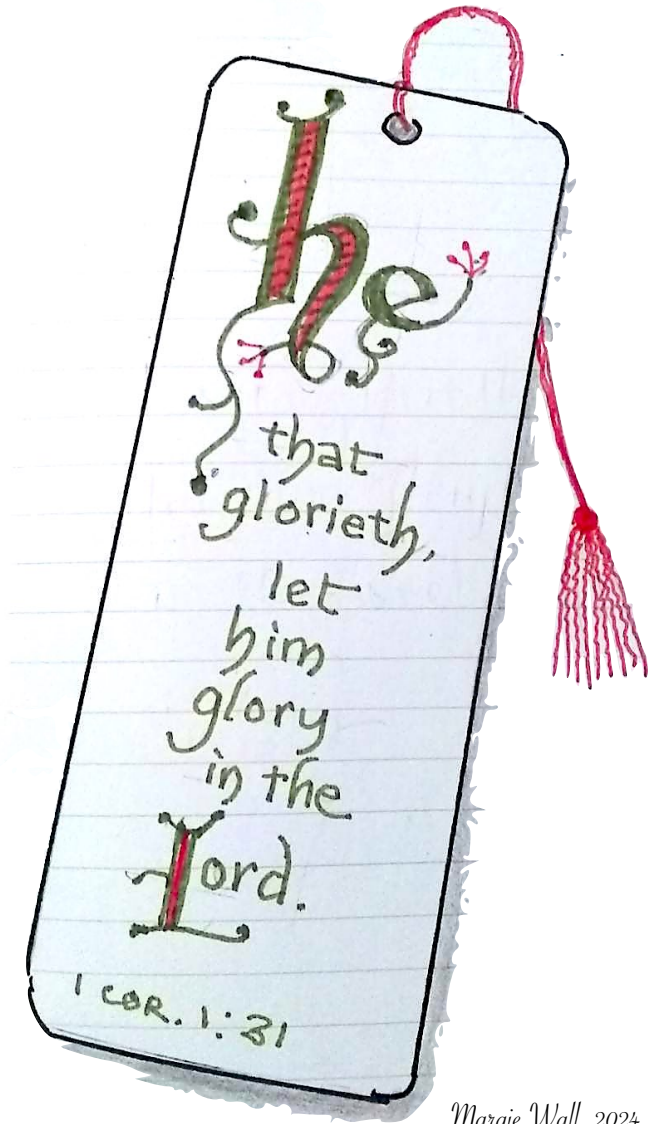 he
that
glorieth,
let
him
glory
in the
Lord.
1 COR. 1:31
Margie Wall 2024